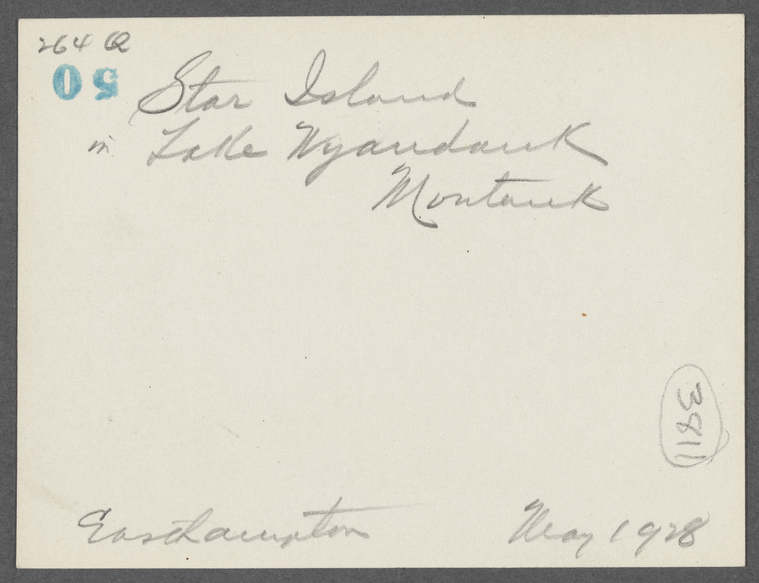 264 Q
50
Star Island
in Lake Wyandank
Montauk
3811
Easthampton May 1928